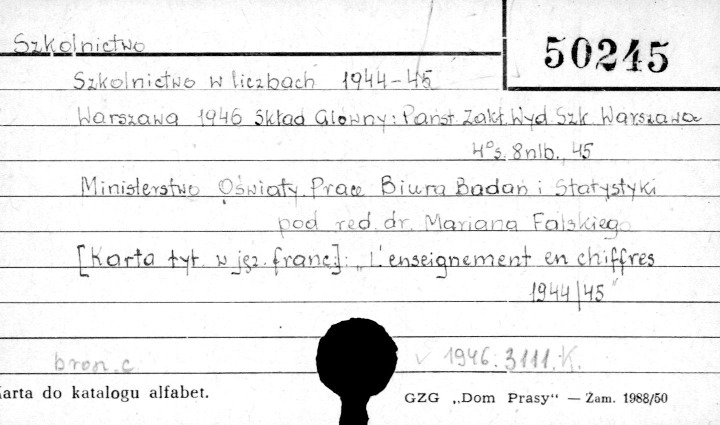 Szkolnictwo
50245
Szkolnictwo w liczbach 1944-45
Warszawa 1946 Skład Główny: Państ. Zakł. Wyd Szk Warszawa
4° s. 8nlb., 45
Ministerstwo Oświaty. Prace Biura Badań i Statystyki
pod red. dr. Mariana Falskiego
[Karta tyt. w jęz. franc]: „L'enseignement en chiffres
1944/45"
bron. c
✓ 1946. 3111. K.
Karta do katalogu alfabet.
GZG „Dom Prasy“ — Zam. 1988/50